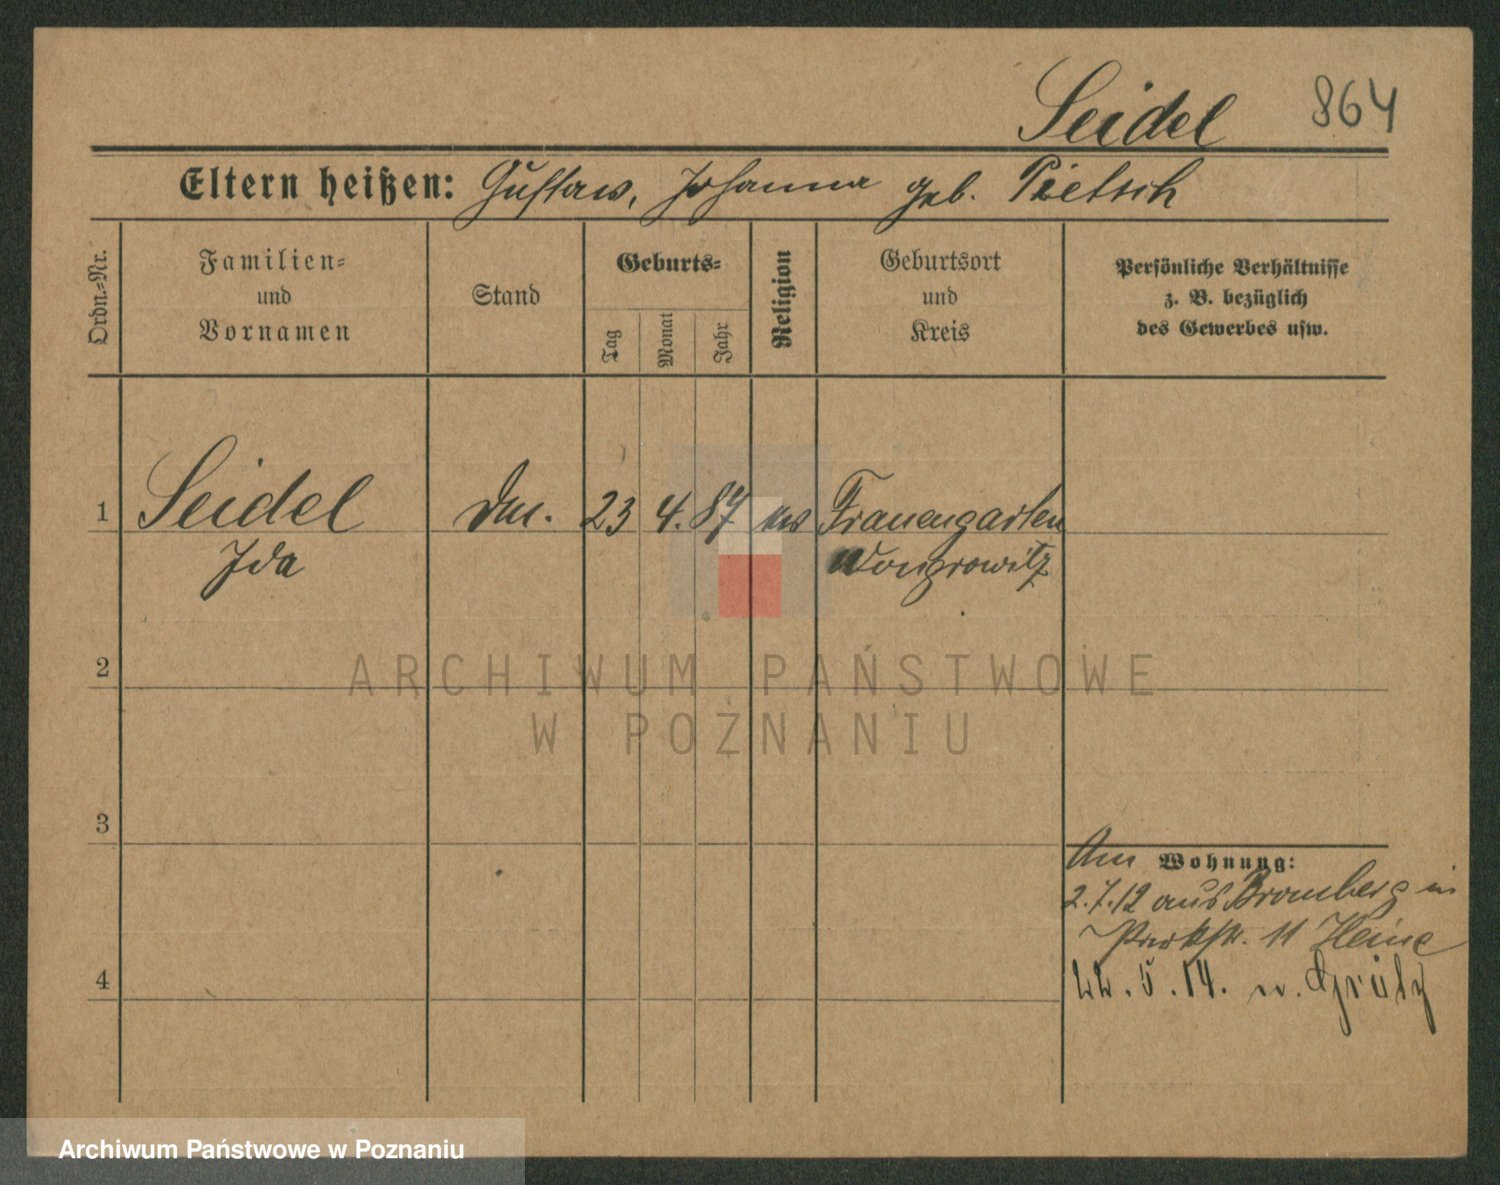 Seidel 864
Eltern heißen: Gustav, Johanna geb. Pietsch
Ordn.-Nr.
Familien-
und
Vornamen
Stand
Geburts-
Tag
Monat
Jahr
Religion
Geburtsort
und
Kreis
Persönliche Verhältnisse
z. B. bezüglich
des Gewerbes usw.
1 Seidel 23 4. 87 Frauengarten
Ida Wongrowitz
2
3
4
Am Wohnung:
2.7.12 aus Bromberg in
Parkstr. 11 Heine
22.5.14. n. Grätz
ARCHIWUM PAŃSTWOWE
W POZNANIU
Archiwum Państwowe w Poznaniu